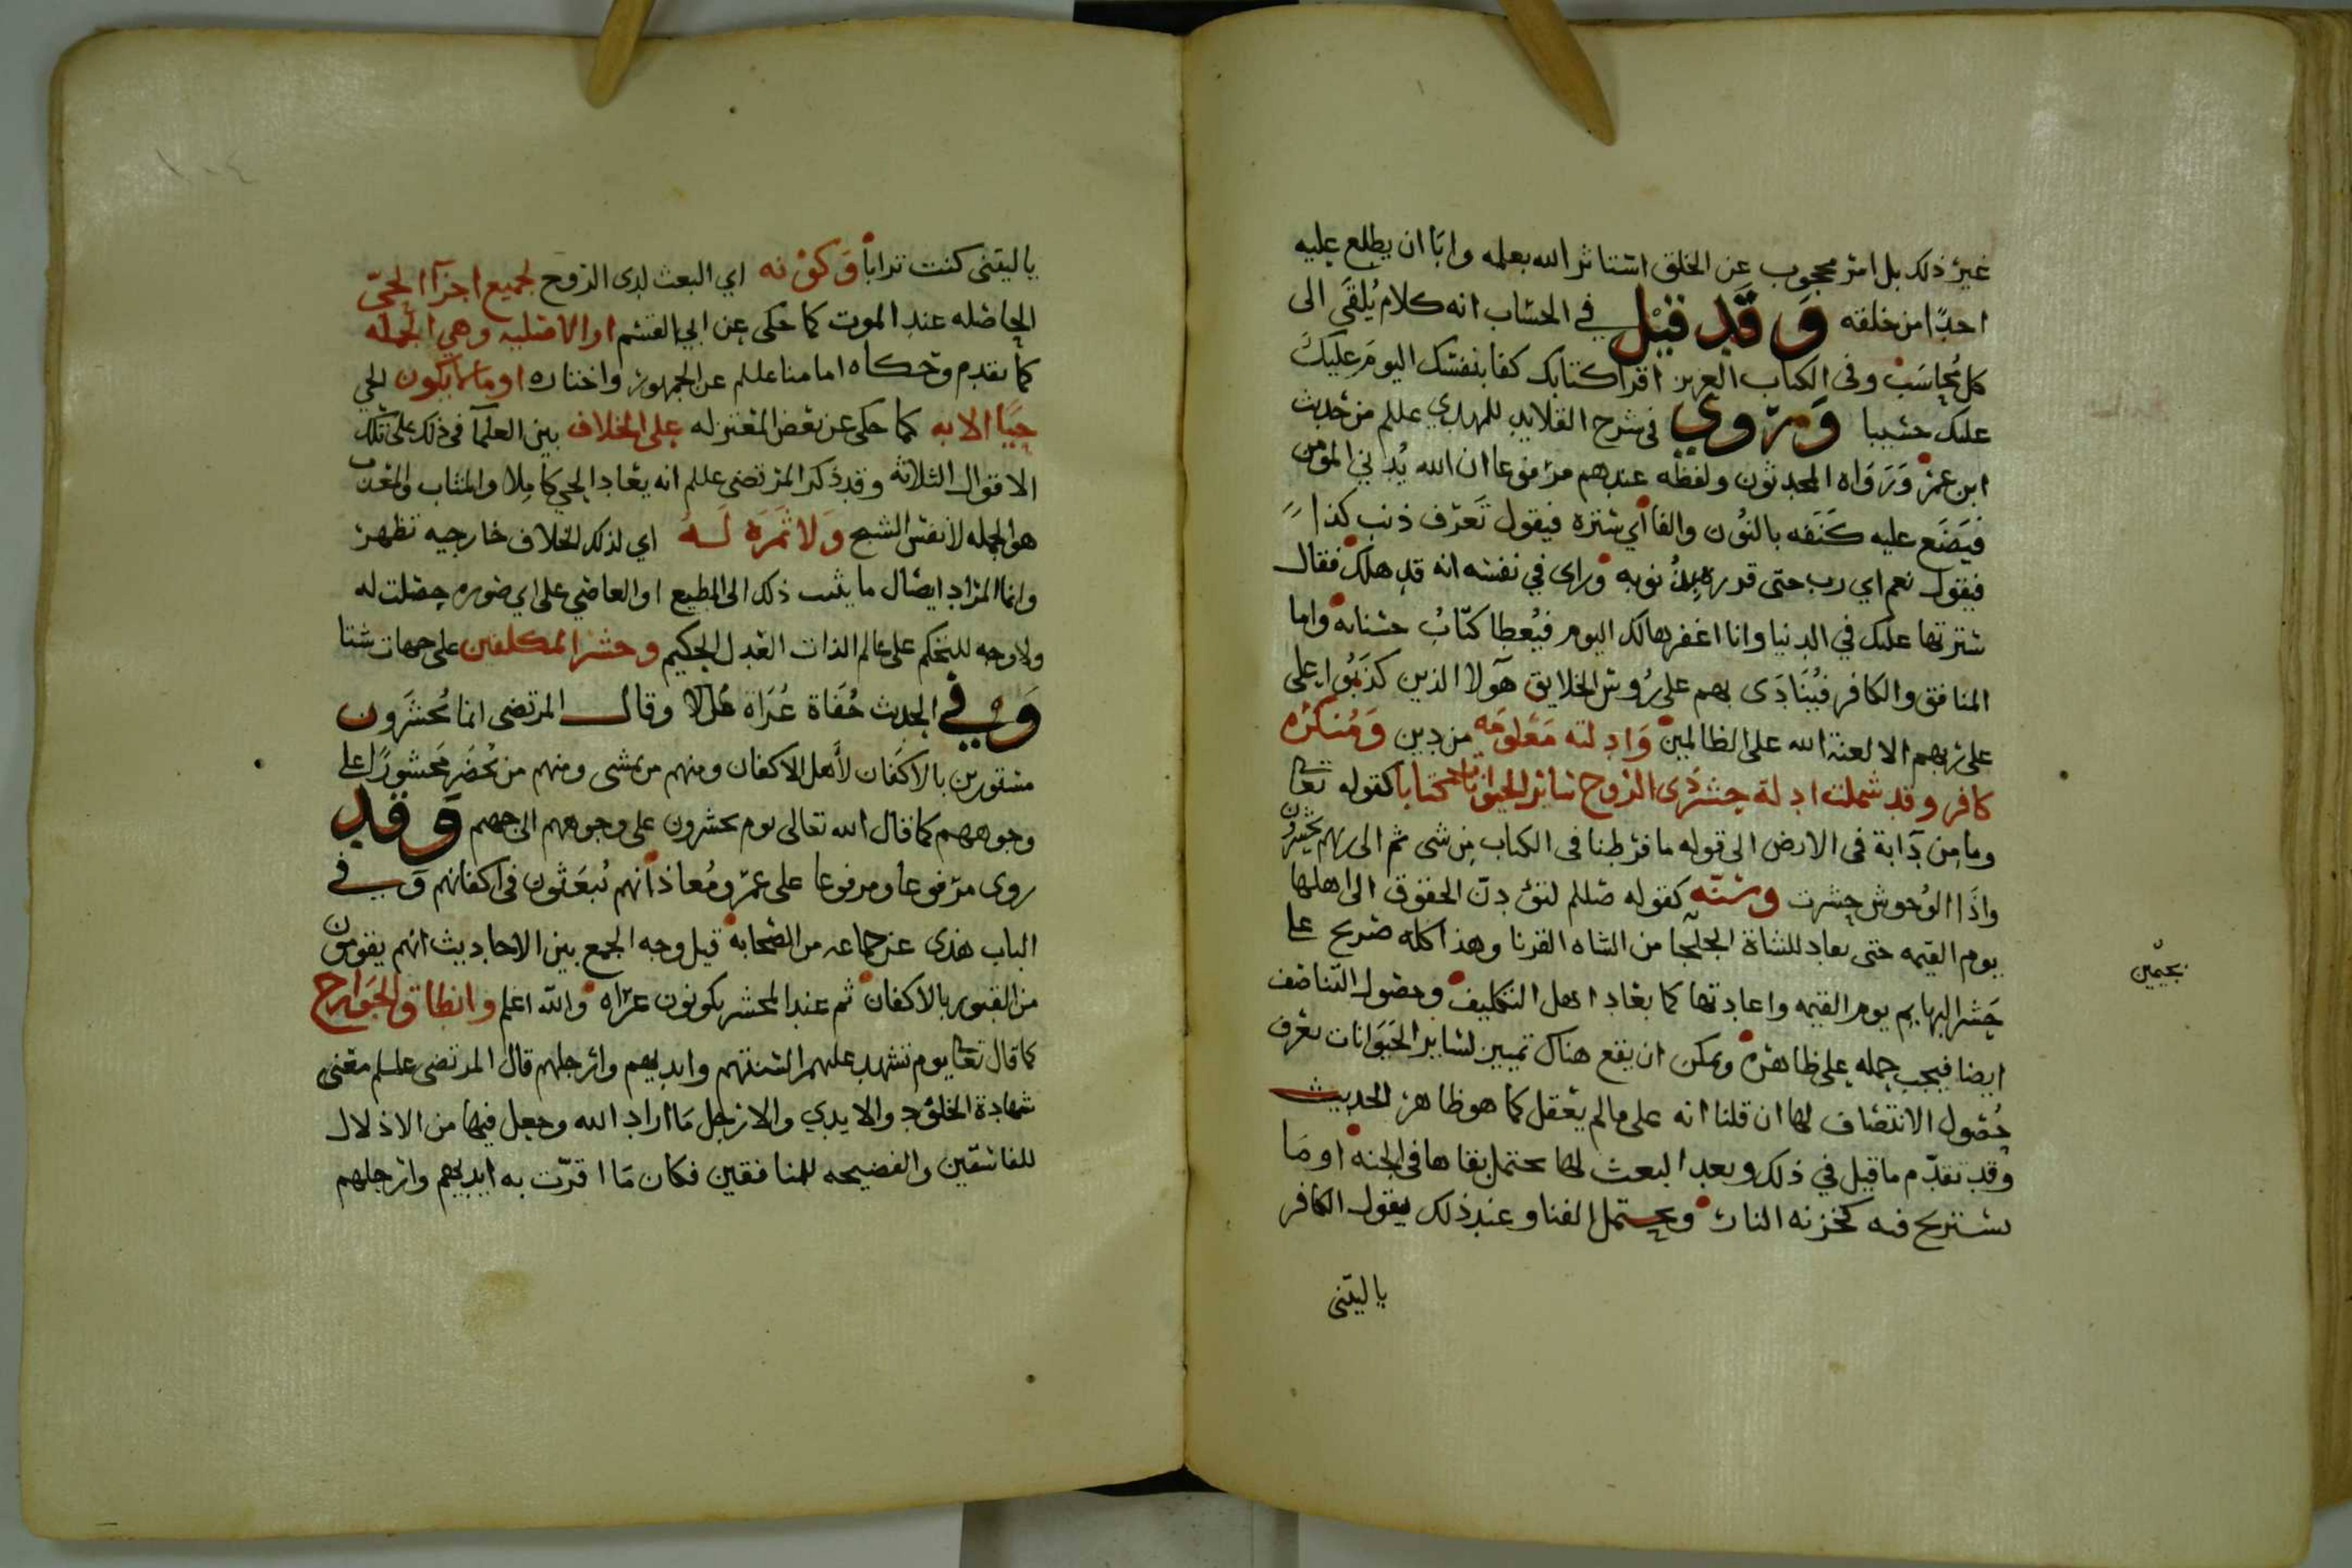 غير ذلك بل امر محجوب عن الخلق استاثر الله بعلمه وابا ان يطلع عليه
احدًا من خلقه وَقَد قيْل في الحساب انه كلام يُلقَى الى
كل مُحاسَب وفى الكتاب العزيز اقرا كتابك كفا بنفسك اليومَ عليكَ
عليك حسيبا وَمروي فى شرح القلايد للمهدي عللم من حديث
ابن عمر وَرَوَاه المحدثون ولفظه عندهم مرفوعا ان الله يُدني المومن
فيَضَع عليه كَنَفه بالنُون والفا أي ستره فيقول تَعرف ذنب كذا
فيقول نعم اي رب حتى قدره بذنوبه وراى في نفسه انه قد هلك فقال
سترتها عليك في الدنيا وانا اغفرها لك اليوم فيُعطا كتابُ حسناته واما
المنافق والكافر فيُنَادَى بهم على رُوس الخلايق هآولا الذين كذَبُوا على
على ربهم الا لعنة الله على الظالمين وَادلته مَعْلومَه من دين وَمُنكرُه
كافر وقد شملت ادلة حشر ذَى الروح سائر الحيوانات كتابا كقوله تعا
وما مِن دَآبة فى الارض الى قوله ما فرطنا فى الكتاب مِن شى ثم الى ربهم يحشرون
واذَا الوُحوش حشرت وسنته كقوله صللم لتؤدن الحقوق الى اهلها
يوم القيمه حتى يعاد للشاة الجلحا من الشاه القرنا وهذا كله صريح على
بجيمين
حَشر البهايم يوم القيمه واعادتها كما يعاد اهل التكليف وحصول التناصف
ايضا فيجب حمله على ظاهره ويمكن ان يقع هناك تمييز لساير الحَيَوَانات تعرف
حُصول الانتصاف لها ان قلنا انه على مالم يعقل كما هو ظاهر الحديث
وقد تقدّم ما قيل في ذلك وبعد البعث لها يحتمل بقاها فى الجنه او مَا
يستريح فيه كخزنه النار ويحتمل الفنا وعند ذلك يقول الكافر
يا ليتنى
يا ليتنى كنت ترابا وَكوْنه اي البعث لذى الروح لجميع اجزآ الحيّ
الحاصله عند الموت كما حكى عن ابي القسم او الاصليه وهي الجمله
كما تقدم وحكاه امامنا عللم عن الجمهور واختاره او ما يكون الحي
حيًا الا به كما حكى عن بعض المعتزله على الخلاف بين العلمآ فى ذلك على تلك
الاقوال الثلاثه وقد ذكر المرتضى عللم انه يعاد الحي كاملا والمثاب والمعذب
هو الجمله لا نفس الشبح وَلا ثَمَرَة لَهُ اي لذلك الخلاف خارجيه تظهر
وانما المراد ايصال ما يثبت ذلك الى المطيع او العاصي على اي صوره حصلت له
ولا وجه للتحكم على عالم الذات العدل الحكيم وحشر المكلفين على جهات شتا
وَفي الحديث حُفَاة عُرَاة غُرلا وقال المرتضى انما يُحشَرون
مستورين بالاكفَان لأهل الاكفان ومنهم من يمشى ومنهم من يُحضَر مَحشورًا على
وجوههم كما قال الله تعالى يوم يحشرون على وجوههم الى جهنم وَقد
روى مرفوعا ومرفوعا على عمر ومُعاذ انهم يُبعَثون فى اكفانهم وَفي
الباب هذى عن جماعه من الصحابه قيل وجه الجمع بين الاحاديث انهم يقومون
من القبور بالاكفان ثم عند المحشر يكونون عراه والله اعلم وانطاق الجَوَارح
كما قال تعا يوم تشهد عليهم السنتهم وايديهم وارجلهم قال المرتضى عللم معنى
شهادة الجلود والايدي والارجل مَا اراد الله وجعل فيها من الاذلال
للفاسقين والفضيحه للمنافقين فكان مَا اقرّت به ايديهم وارجلهم
١٠٤